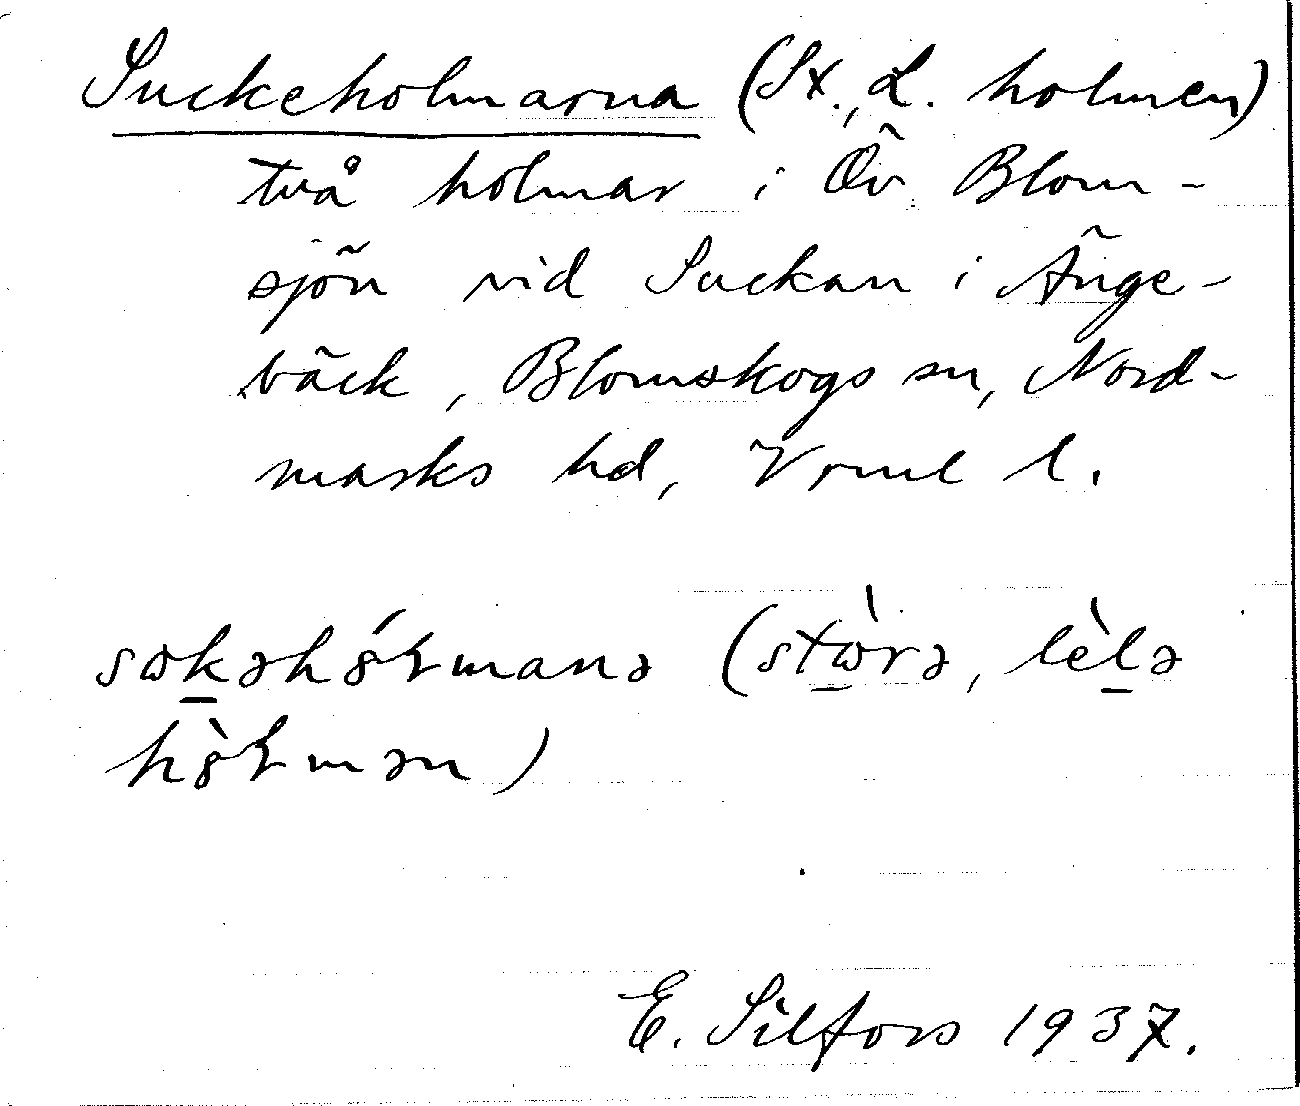 Suckeholmarna (St., L. holmen)
två holmar i Öv. Blom-
sjön vid Suckan i Änge-
bäck, Blomskogs sn, Nord-
marks hd, Vrml l.
sɷkəhɞ́ɽmanə (stɷ̀rə, lèlə
hɞ̀ɽmən)
E. Silfors 1937.